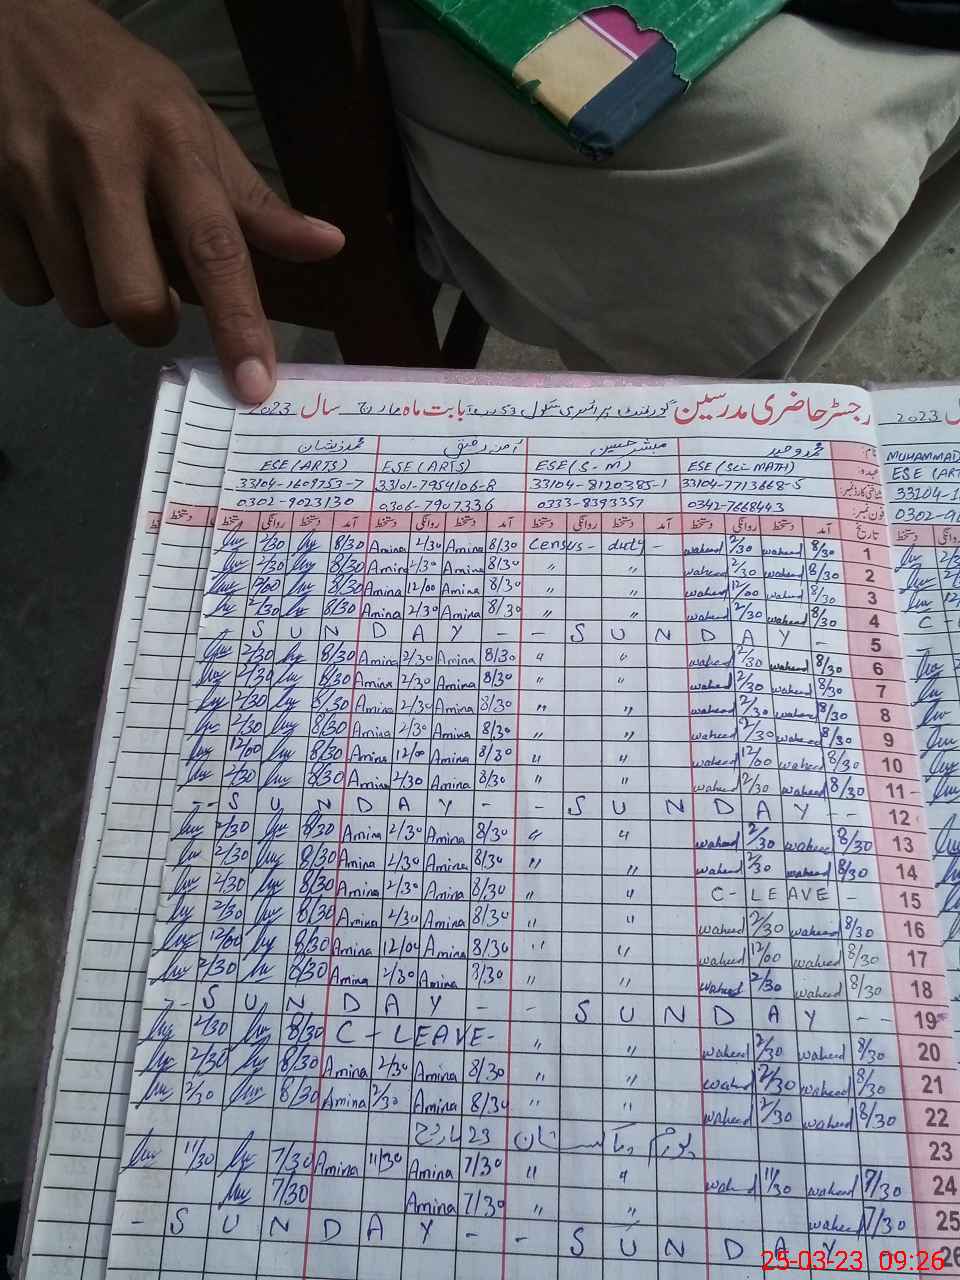 رجسٹر حاضری مدرسین گورنمنٹ پرائمری سکول 53 بابت ماہ مارچ سال 2023
نام: محمد وحید مبشر حسین آمنہ رفیق محمد ذیشان
عہدہ: ESE (Sci-MATH) ESE (S-M) ESE (ARTS) ESE (ARTS)
شناختی کارڈ نمبر: 33104-7713668-5 33104-8120385-1 33101-7954106-8 33104-1609753-7
فون نمبر: 0342-7668443 0333-8393357 0306-7907336 0302-9023130
تاریخ آمد دستخط روانگی دستخط آمد دستخط روانگی دستخط آمد دستخط روانگی دستخط
1 8/30 waheed 2/30 waheed Census - duty - 8/30 Amina 2/30 Amina 8/30 2/30
2 8/30 waheed 2/30 waheed " " 8/30 Amina 2/30 Amina 8/30 2/30
3 8/30 waheed 12/00 waheed " " 8/30 Amina 12/00 Amina 8/30 12/00
4 8/30 waheed 2/30 waheed " " 8/30 Amina 2/30 Amina 8/30 2/30
5 S U N D A Y - - S U N D A Y -
6 8/30 waheed 2/30 waheed " " 8/30 Amina 2/30 Amina 8/30 2/30
7 8/30 waheed 2/30 waheed " " 8/30 Amina 2/30 Amina 8/30 2/30
8 8/30 waheed 2/30 waheed " " 8/30 Amina 2/30 Amina 8/30 2/30
9 8/30 waheed 2/30 waheed " " 8/30 Amina 2/30 Amina 8/30 2/30
10 8/30 waheed 12/00 waheed " " 8/30 Amina 12/00 Amina 8/30 12/00
11 8/30 waheed 2/30 waheed " " 8/30 Amina 2/30 Amina 8/30 2/30
12 - - S U N D A Y - - S U N D A Y - -
13 8/30 waheed 2/30 waheed " " 8/30 Amina 2/30 Amina 8/30 2/30
14 8/30 waheed 2/30 waheed " " 8/30 Amina 2/30 Amina 8/30 2/30
15 C - LEAVE - " " 8/30 Amina 2/30 Amina 8/30 2/30
16 8/30 waheed 2/30 waheed " " 8/30 Amina 2/30 Amina 8/30 2/30
17 8/30 waheed 12/00 waheed " " 8/30 Amina 12/00 Amina 8/30 12/00
18 8/30 waheed 2/30 waheed " " 8/30 Amina 2/30 Amina 8/30 2/30
19 - - S U N D A Y - - S U N D A Y - -
20 8/30 waheed 2/30 waheed " " C - LEAVE - 8/30 2/30
21 8/30 waheed 2/30 waheed " " 8/30 Amina 2/30 Amina 8/30 2/30
22 8/30 waheed 2/30 waheed " " 8/30 Amina 2/30 Amina 8/30 2/30
23 یوم پاکستان 23 مارچ
24 7/30 waheed 11/30 waheed " " 7/30 Amina 11/30 Amina 7/30 11/30
25 7/30 waheed " " 7/30 Amina 7/30
26 - S U N D A Y - - S U N D A Y
2023
MUHAMMAD
ESE (ART
33104-1
0302-90
دستخط
25-03-23 09:26